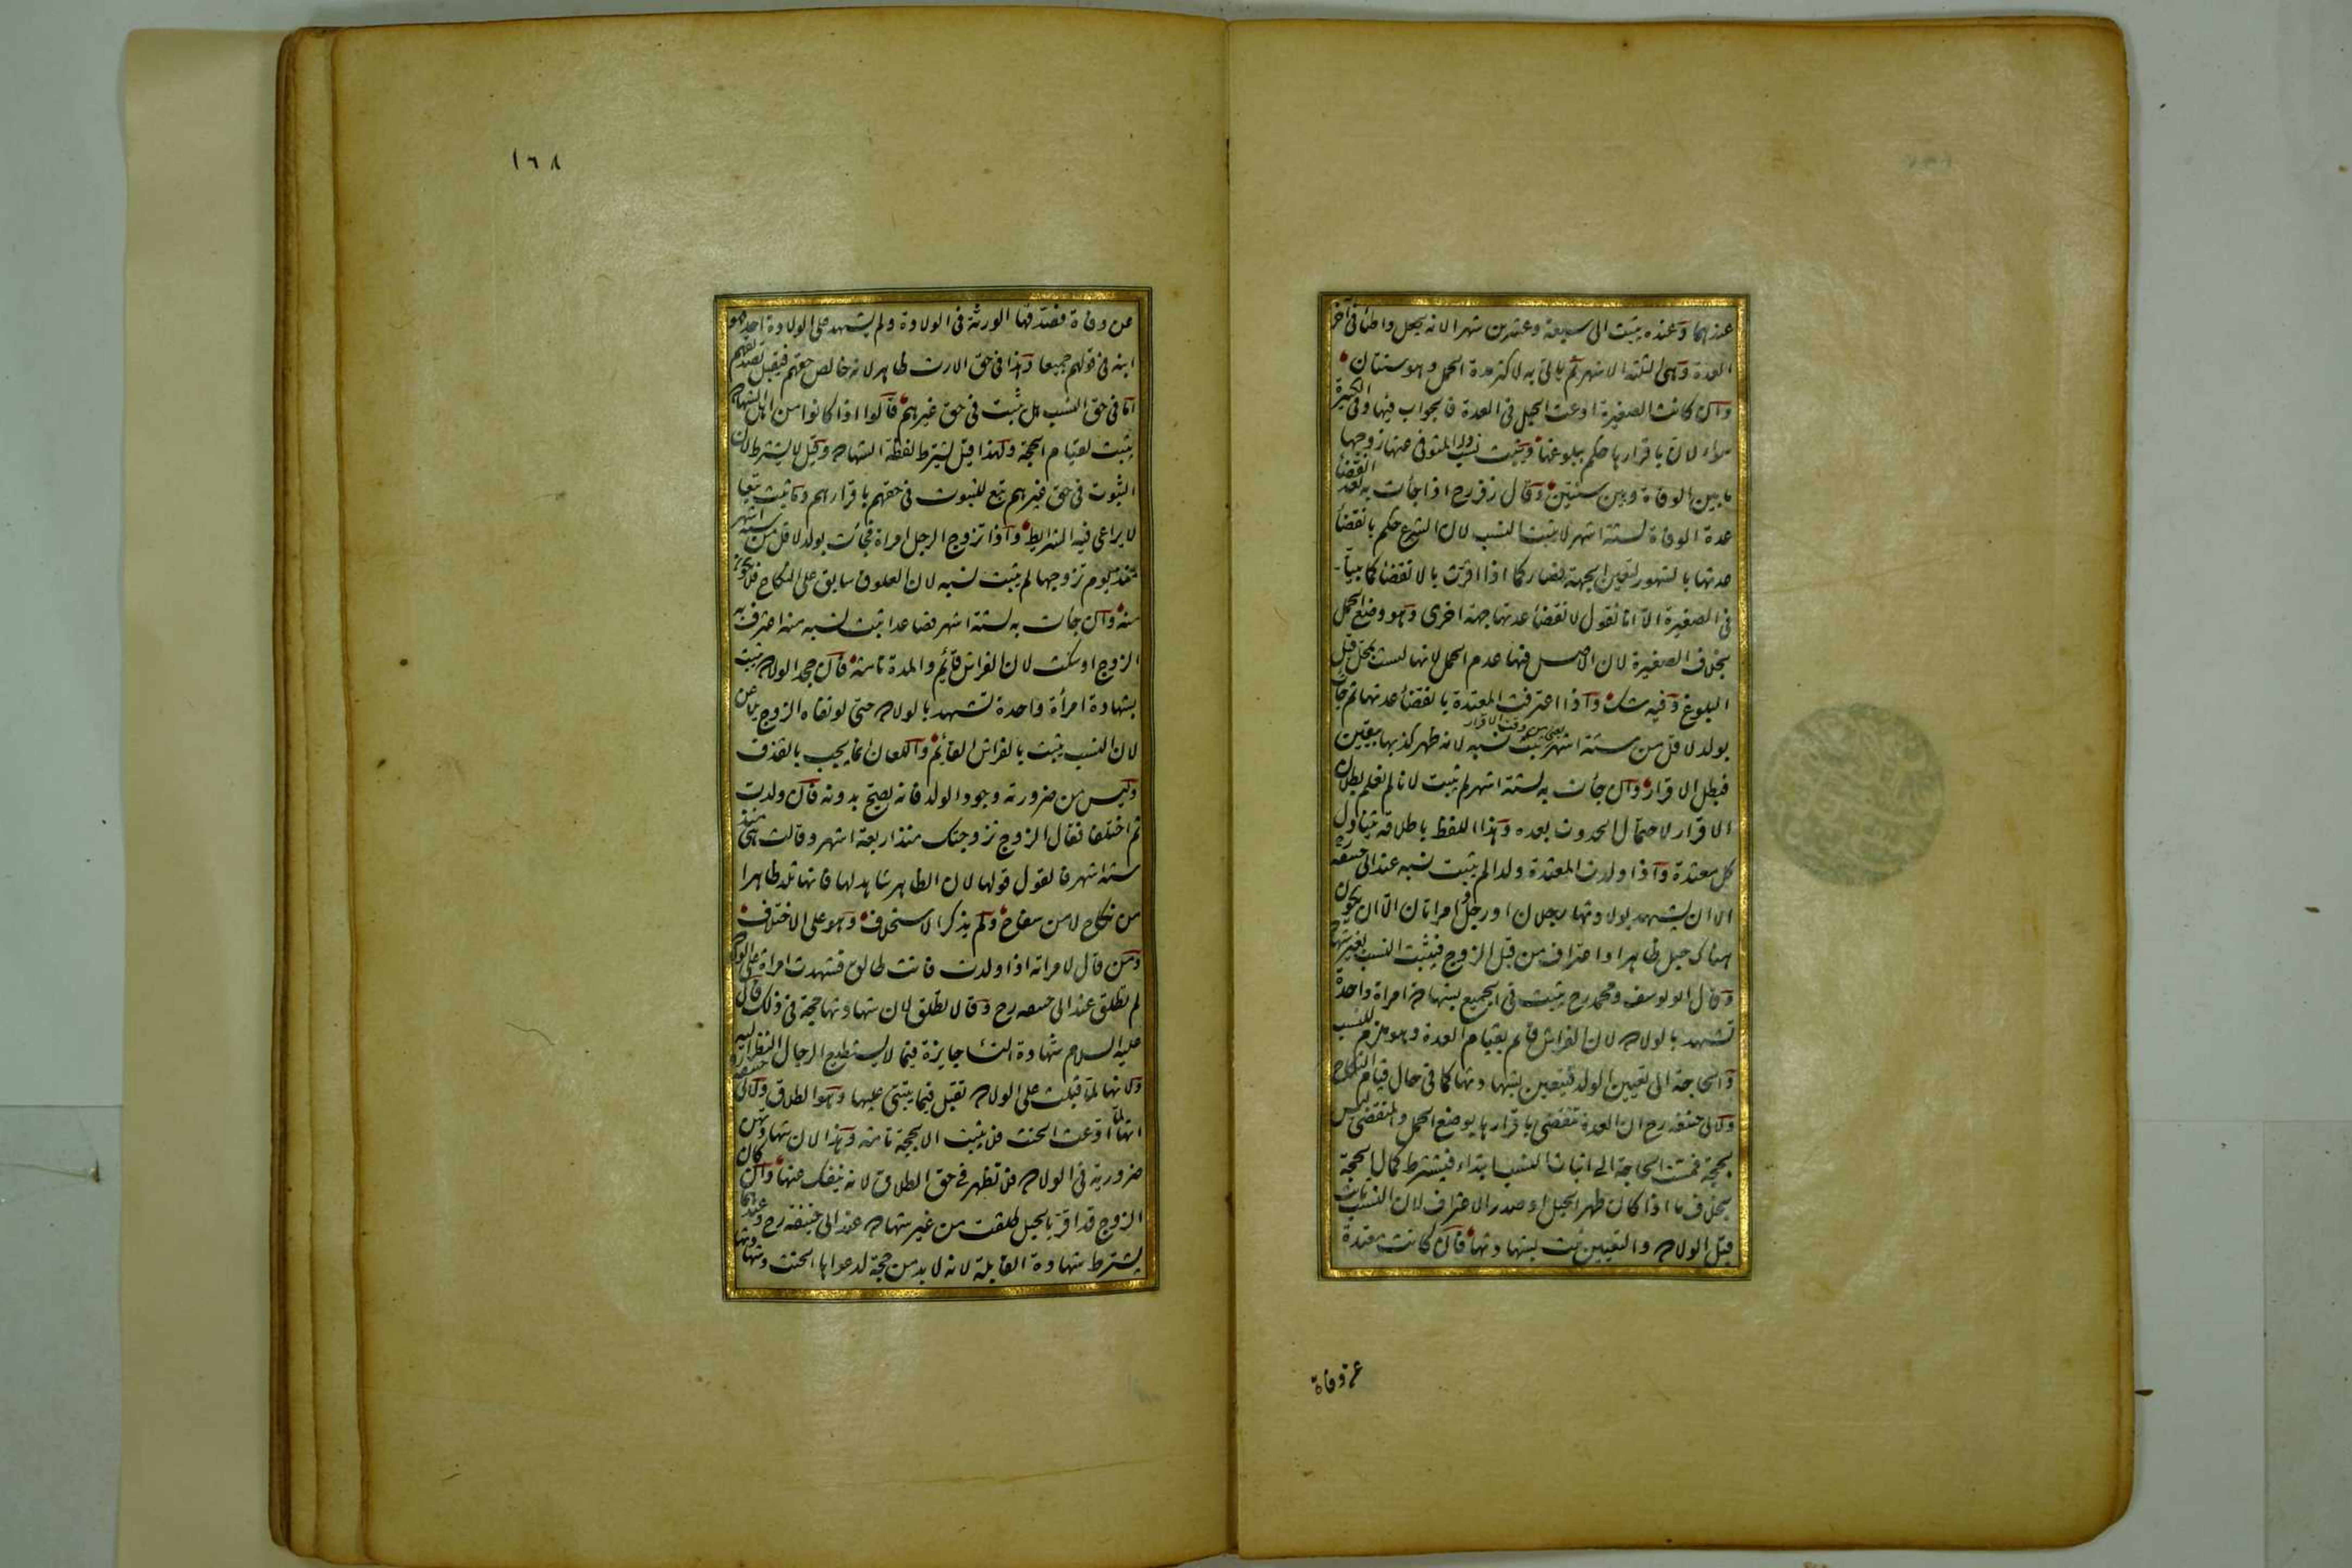 عندهما وعنده يثبت الى سبعة وعشرين شهرا لانه يجعل واطئا فى آخر
العدة وهى الثلثة الاشهر ثم ياتى به لاكثر مدة الحمل وهو سنتان
وان كانت الصغيرة ادعت الحبل فى العدة فالجواب فيها وفى الكبيرة
سواء لان باقرارها حكم ببلوغها ويثبت نسب ولد المتوفى عنها زوجها
ما بين الوفاة وبين سنتين وقال زفر رح اذا جاءت به بعد انقضاء
عدة الوفاة لستة اشهر لا يثبت النسب لان الشرع حكم بانقضاء
عدتها بالشهور لتعين الجهة فصار كما اذا اقرت بالانقضاء كما بينا
فى الصغيرة الا انا نقول لانقضاء عدتها جهة اخرى وهو وضع الحمل
بخلاف الصغيرة لان الاصل فيها عدم الحمل لانها ليست بمحل قبل
البلوغ وفيه شك واذا اعترفت المعتدة بانقضاء عدتها ثم جاءت
بولد لاقل من ستة اشهر يعنى من وقت الاقرار يثبت نسبه لانه ظهر كذبها بيقين
فبطل الاقرار وان جاءت به لستة اشهر لم يثبت لانا لم نعلم ببطلان
الاقرار لاحتمال الحدوث بعده وهذا اللفظ باطلاقه يتناول
كل معتدة واذا ولدت المعتدة ولدا لم يثبت نسبه عند ابى حنيفة
الا ان يشهد بولادتها رجلان او رجل وامراتان الا ان يكون
هناك حبل ظاهر او اعتراف من قبل الزوج فيثبت النسب بغير شهادة
وقال ابو يوسف ومحمد رح يثبت فى الجميع بشهادة امراة واحدة
تشهد بالولادة لان الفراش قائم بقيام العدة وهو ملزم للنسب
والحاجة الى تعيين الولد فيتعين بشهادتها كما فى حال قيام النكاح
ولابى حنيفة رح ان العدة تنقضى باقرارها بوضع الحمل والمنقضى ليس
بحجة فمست الحاجة الى اثبات النسب ابتداء فيشترط كمال الحجة
بخلاف ما اذا كان ظهر الحبل او صدر الاعتراف لان النسب ثابت
قبل الولادة والتعيين يثبت بشهادتها فان كانت معتدة
عن وفاة
١٦٨
عن وفاة فصدقها الورثة فى الولادة ولم يشهد على الولادة احد فهو
ابنه فى قولهم جميعا وهذا فى حق الارث ظاهر لانه خالص حقهم فيقبل تصديقهم
اما فى حق النسب هل يثبت فى حق غيرهم قالوا اذا كانوا من اهل الشهادة
يثبت لقيام الحجة ولهذا قيل يشترط لفظة الشهادة وقيل لا يشترط لان
الثبوت فى حق غيرهم تبع للثبوت فى حقهم باقرارهم وما ثبت تبعا
لا يراعى فيه الشرايط واذا تزوج الرجل امراة فجاءت بولد لاقل من ستة اشهر
منذ يوم تزوجها لم يثبت نسبه لان العلوق سابق على النكاح فلا يكون
منه وان جاءت به لستة اشهر فصاعدا يثبت نسبه منه اعترف به
الزوج او سكت لان الفراش قائم والمدة تامة فان جحد الولادة يثبت
بشهادة امرأة واحدة تشهد بالولادة حتى لو نفاه الزوج يلاعن
لان النسب يثبت بالفراش القائم واللعان انما يجب بالقذف
وليس من ضرورته وجود الولد فانه يصح بدونه فان ولدت
ثم اختلفا فقال الزوج تزوجتك منذ اربعة اشهر وقالت هى منذ
ستة اشهر فالقول قولها لان الظاهر شاهد لها فانها تلد ظاهرا
من نكاح لا من سفاح ولم يذكر الاستحلاف وهو على الاختلاف
ومن قال لامراته اذا ولدت فانت طالق فشهدت امراة على الولادة
لم تطلق عند ابى حنيفه رح وقالا تطلق لان شهادتها حجة فى ذلك قال
عليه السلام شهادة النساء جايزة فيما لا يستطيع الرجال النظر اليه
ولانها لما قبلت على الولادة تقبل فيما يبتنى عليها وهو الطلاق ولابى حنيفة
انها ادعت الحنث فلا يثبت الا بحجة تامة وهذا لان شهادتهن
ضرورية فى الولادة فلا تظهر فى حق الطلاق لانه ينفك عنها وان كان
الزوج قد اقر بالحبل طلقت من غير شهادة عند ابى حنيفة رح وعندهما
يشترط شهادة القابلة لانه لا بد من حجة لدعواها الحنث وشهادتها